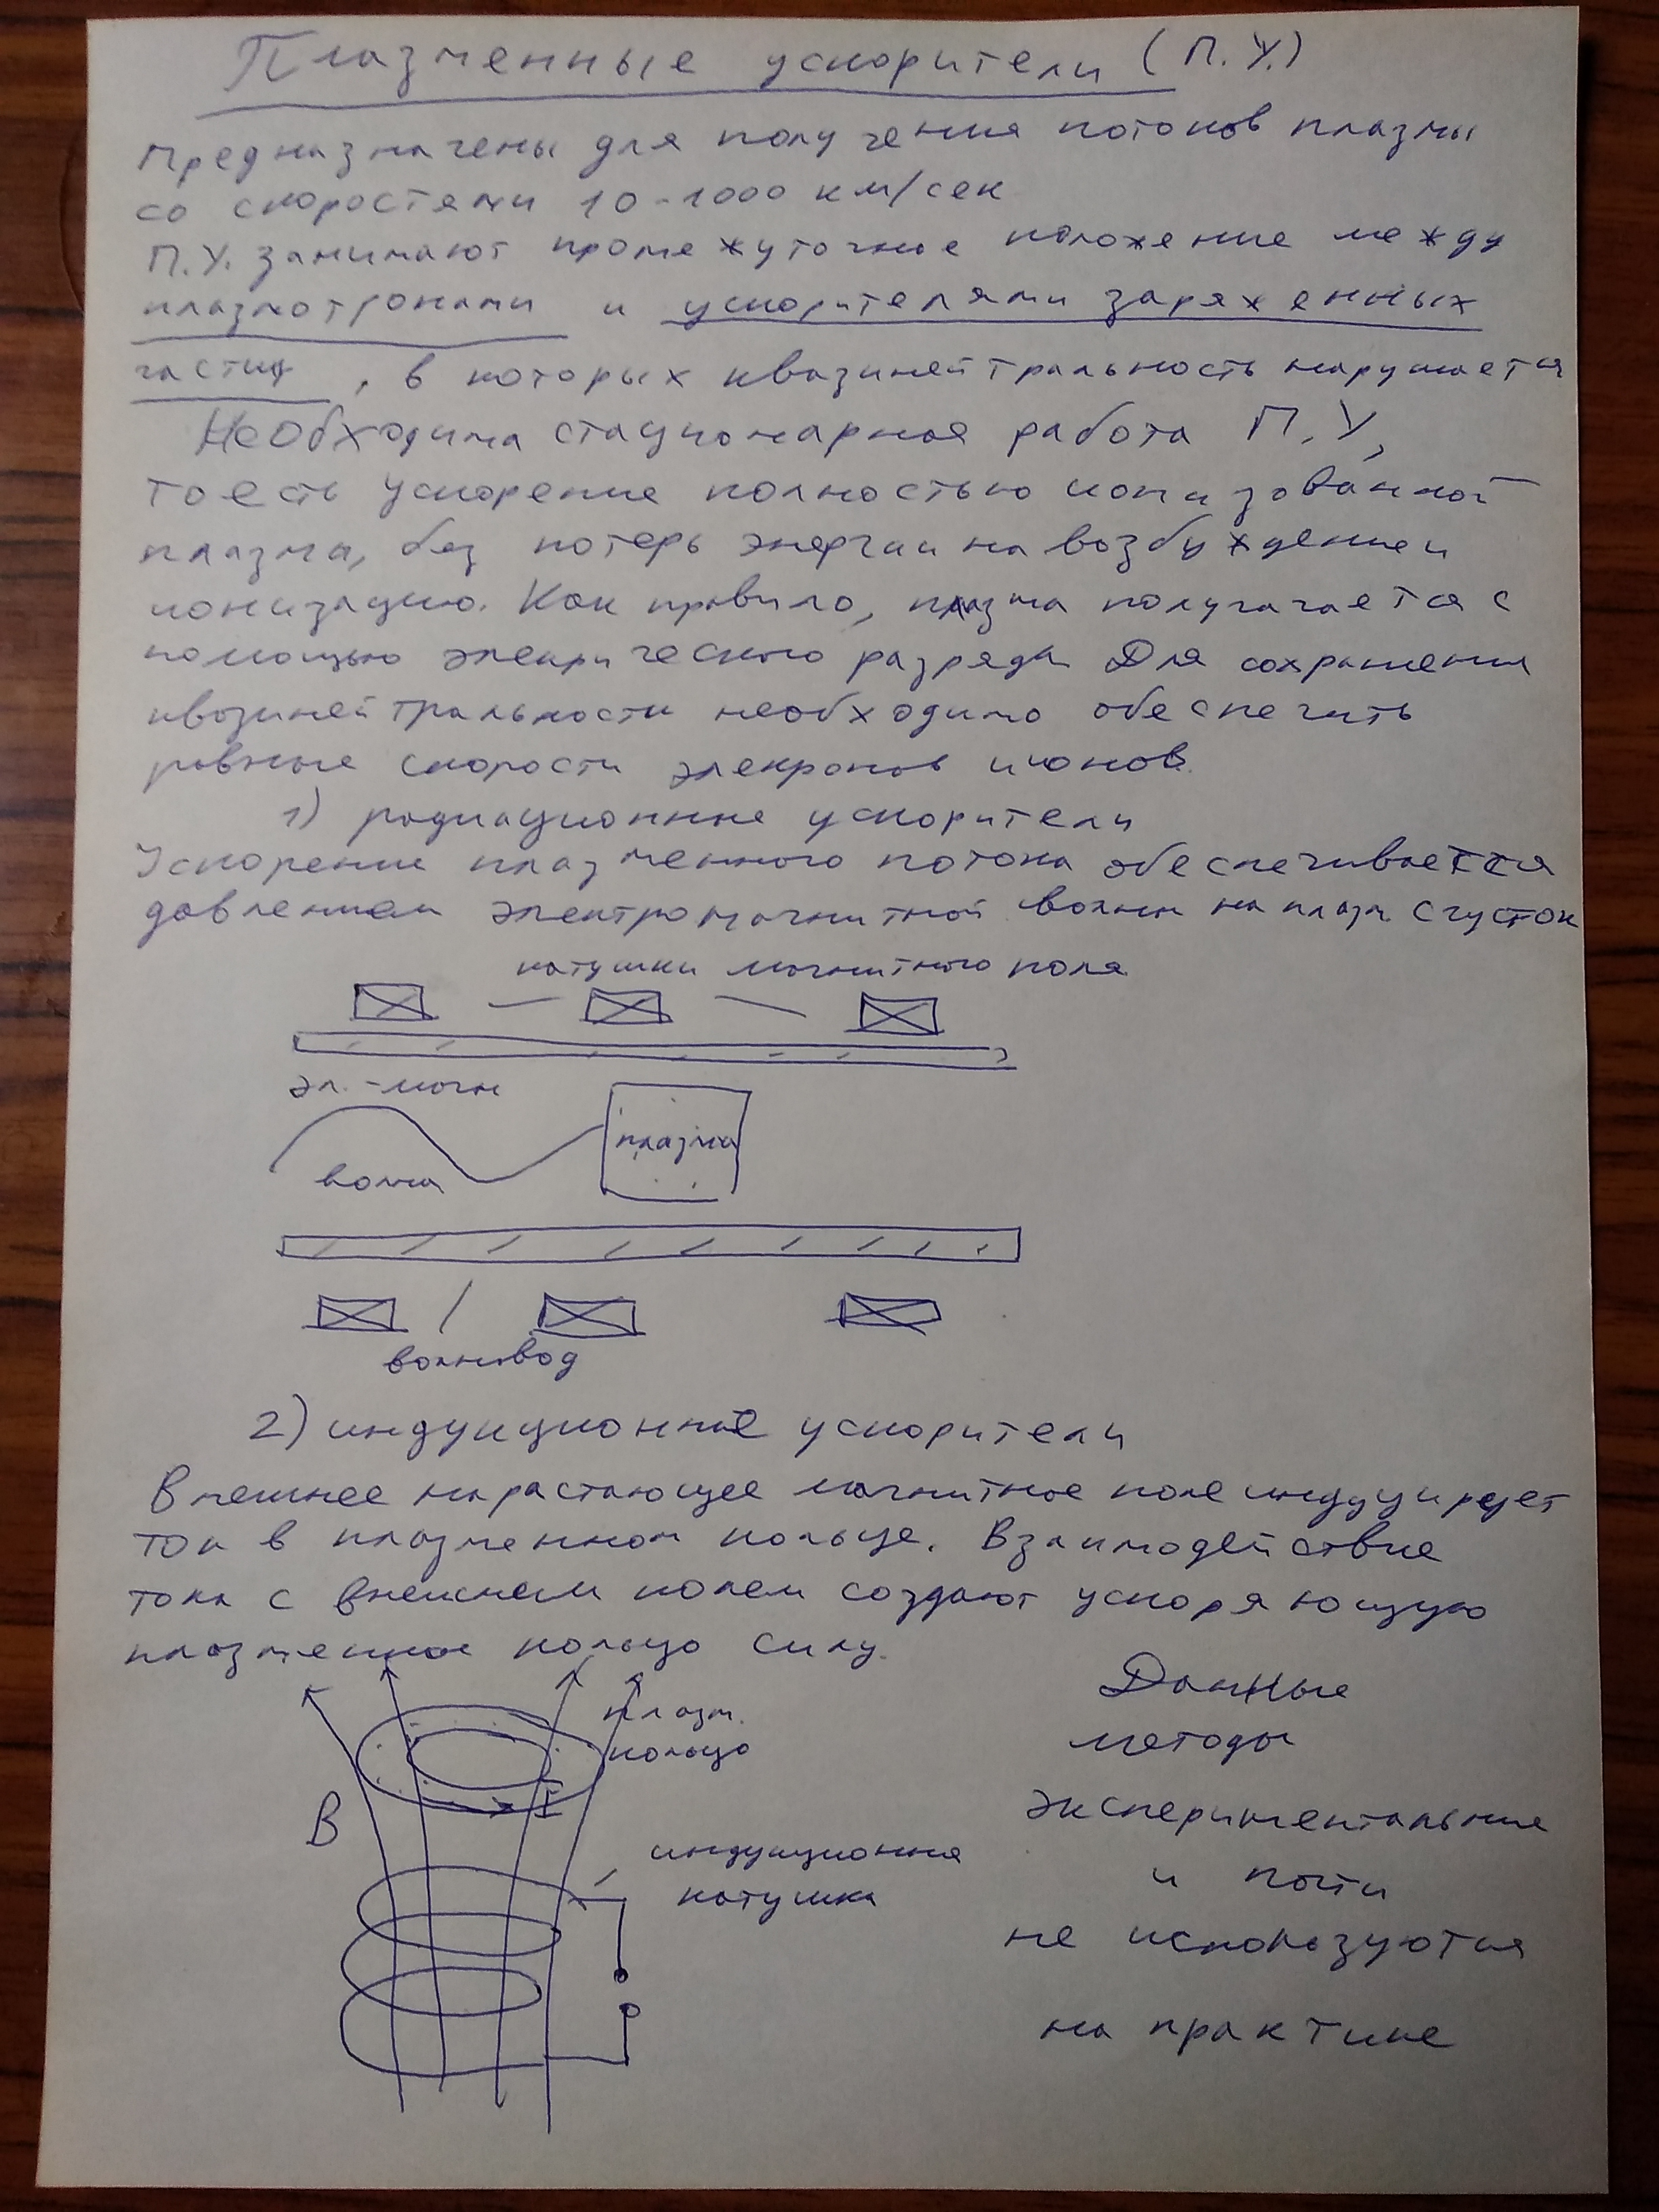 Плазменные ускорители (П.У.)
Предназначены для получения потоков плазмы
со скоростями 10-1000 км/сек
П.У. занимают промежуточное положение между
плазмотронами и ускорителями заряженных
частиц, в которых квазинейтральность нарушается
Необходима стационарная работа П.У,
то есть ускорение полностью ионизованной
плазмы, без потерь энергии на возбуждение и
ионизацию. Как правило, плазма получается с
помощью элекрического разряда Для сохранения
квазинейтральности необходимо обеспечить
равные скорости элекронов и ионов.
1) радиационные ускорители
Ускорение плазменного потока обеспечивается
давлением электромагнитной волны на плазм сгусток
катушки магнитного поля
эл.-магн
плазма
волна
волновод
2) индукционные ускорители
Внешнее нарастающее магнитное поле индуцирует
ток в плазменном кольце. Взаимодействие
тока с внешнем полем создают ускоряющую
плазменное кольцо силу.
плазм.
кольцо
I
B
индукционная
катушка
Данные
методы
экспериментальные
и почти
не используются
на практике